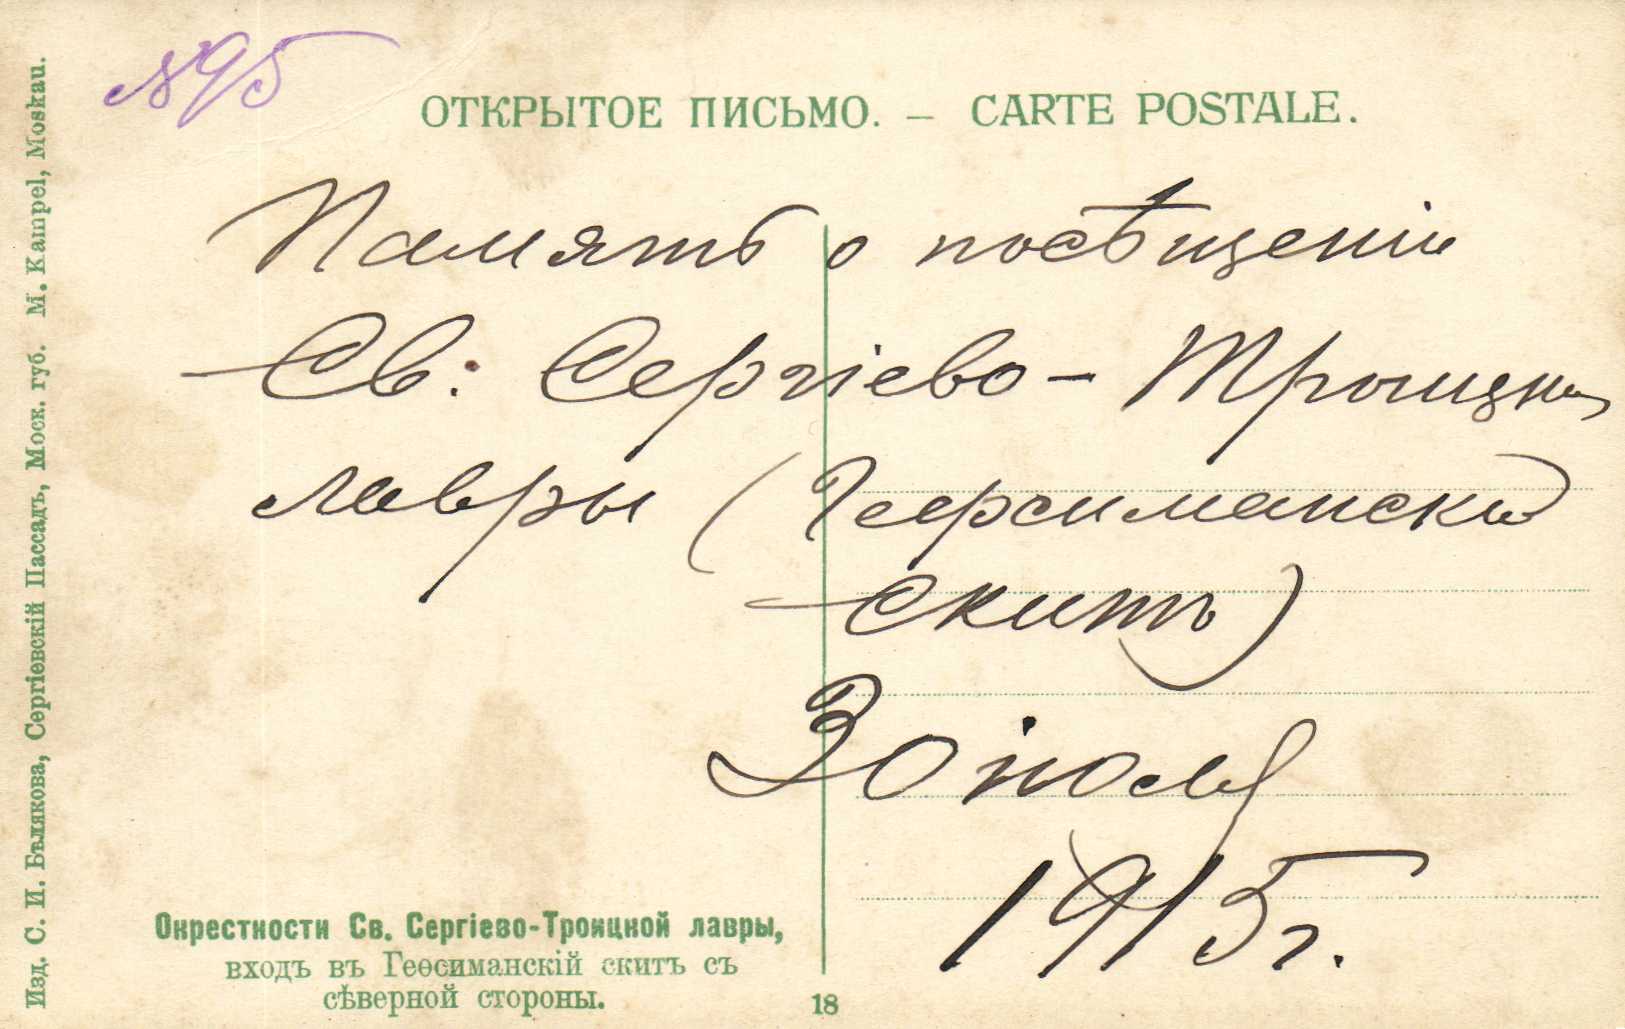 № 95
ОТКРЫТОЕ ПИСЬМО. – CARTE POSTALE.
Память о посѣщеніи
Св: Сергіево-Троицкой
лавры (Геѳсиманскій
скитъ)
30 іюля
1915 г.
Окрестности Св. Сергіево-Троицкой лавры,
входъ въ Геѳсиманскій скитъ съ
сѣверной стороны.
18
Изд. С. И. Бѣлякова, Сергіевскій Пассадъ, Моск. губ. М. Kampel, Moskau.